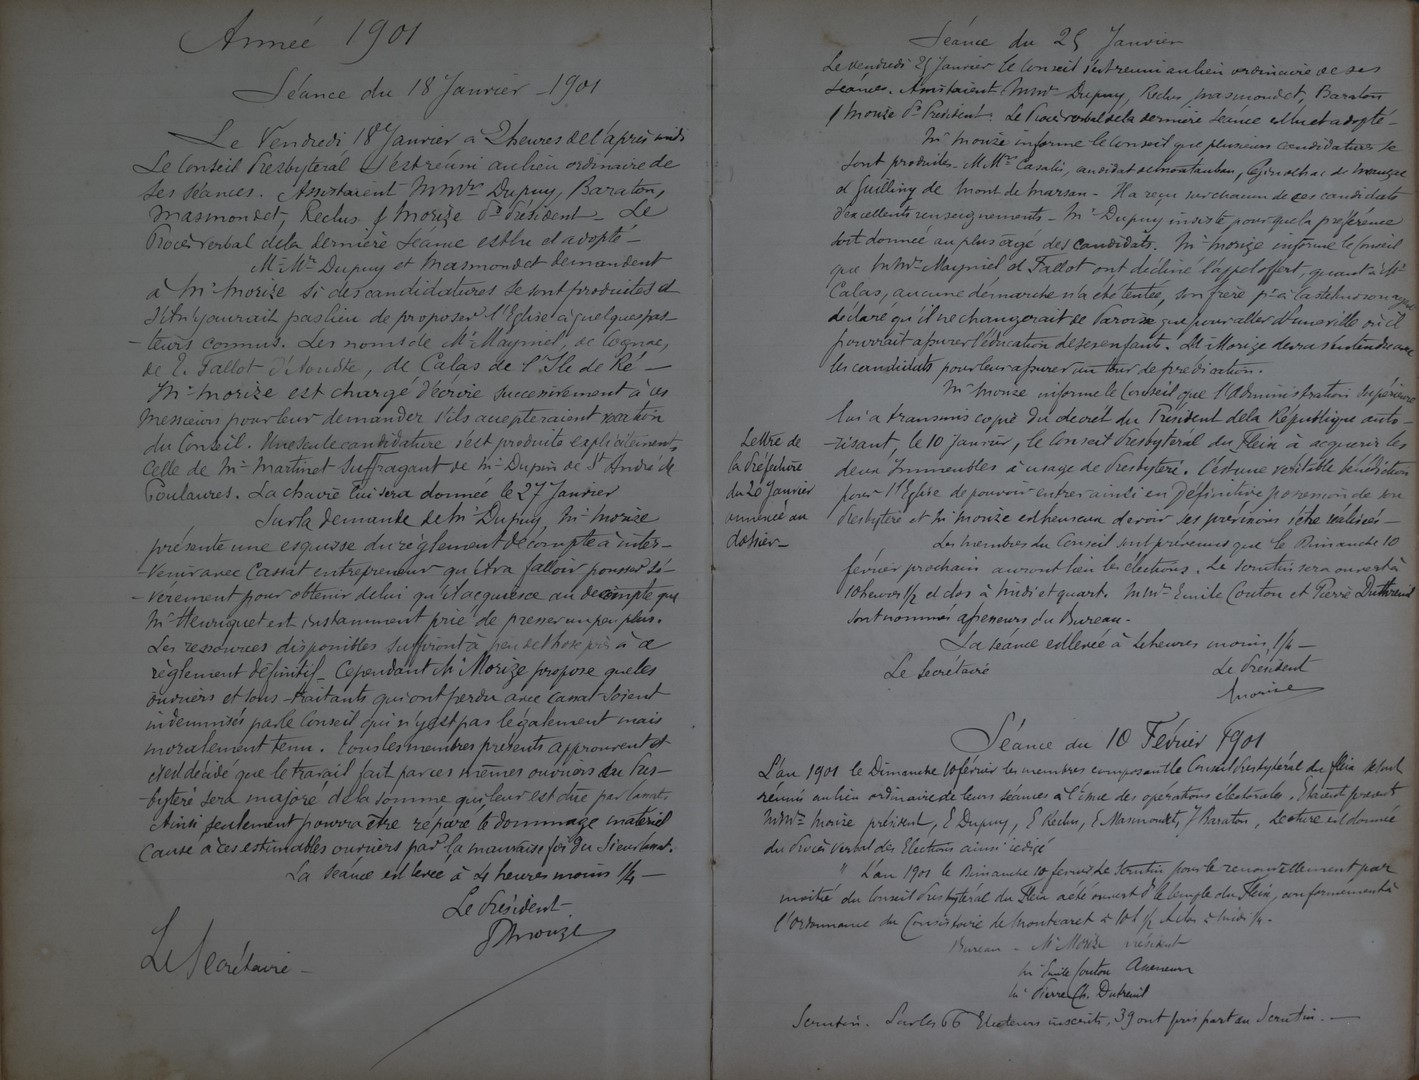 Année 1901
Séance du 18 Janvier 1901
Le Vendredi 18 Janvier à 2 heures de l'après midi
Le Conseil Presbytéral s'est réuni au lieu ordinaire de
ses séances. Assistaient MMrs Dupuy, Baraton,
Masmondet, Reclus & Morize Pr Président _ Le
Procès verbal de la dernière séance est lu et adopté _
M. Mrs Dupuy et Masmondet demandent
à Mr Morize si des candidatures se sont produites et
s'il n'y aurait pas lieu de proposer l'Eglise à quelques pas-
-teurs connus. Les noms de Mr Mayniel, de Cognac,
de E. Fallot d'Aouste, de Calas de l'Ile de Ré _
Mr Morize est chargé d'écrire successivement à ces
Messieurs pour leur demander s'ils accepteraient
du Conseil. Une seule candidature s'est produite explicitement,
Celle de Mr Martinet Suffragant de Mr Dupin de St André de
. La chaire lui sera donnée le 27 Janvier
Sur la demande de Mr Dupuy, Mr Morize
présente une esquisse du règlement de compte à inter-
-venir avec Cassat entrepreneur qu'il va falloir pousser sé-
-vèrement pour obtenir de lui qu'il acquiesce au décompte que
Mr Henriquet est instamment prié de presser un peu plus.
Les ressources disponibles suffiront à peu de chose près à ce
règlement définitif _ Cependant Mr Morize propose que les
ouvriers et sous-traitants qui ont perdu avec Cassat soient
indemnisés par le Conseil qui n'y est pas légalement mais
moralement tenu. Tous les membres présents approuvent et
il est décidé que le travail fait par ces mêmes ouvriers au Pres-
-bytère sera majoré de la somme qui leur est due par Cassat.
Ainsi seulement pourra être réparé le dommage matériel
causé à ces estimables ouvriers par la mauvaise foi du Sieur Cassat.
La séance est levée à 4 heures moins 1/4 _
Le Président
Morize
Le Secrétaire _
Séance du 25 Janvier
Le vendredi 25 Janvier le Conseil s'est réuni au lieu ordinaire de ses
séances. Assistaient MMrs Dupuy, Reclus, Masmondet, Baraton
& Morize Pr Président. Le Procès verbal de la dernière séance est lu et adopté _
Mr Morize informe le Conseil que plusieurs candidatures se
sont produites. M. Mrs Casalis, candidat de Montauban,
et Guilliny de Mont de Marsan _ Il a reçu sur chacun de ces candidats
d'excellents renseignements _ Mr Dupuy insiste pour que la préférence
soit donnée au plus âgé des candidats. Mr Morize informe le Conseil
que MMrs Mayniel et Fallot ont décliné l'appel offert, quant à Mr
Calas, aucune démarche n'a été tentée, son frère pr à Castelmoron ayant
déclaré qu'il ne changerait de Paroisse que pour aller d'une ville où il
pourrait assurer l'éducation de ses enfants. Mr Morize devra s'entendre avec
les candidats pour leur assurer un tour de prédication.
Mr Morize informe le Conseil que l'Administration supérieure
lui a transmis copie du décret du Président de la République auto-
-risant, le 10 Janvier, le Conseil Presbytéral du Fleix à acquérir les
deux Immeubles à usage de Presbytère. C'est une véritable bénédiction
pour l'Eglise de pouvoir entrer ainsi en définitive possession de son
Presbytère et Mr Morize est heureux de voir ses prévisions s'être réalisées _
Lettre de
la Préfecture
du 20 Janvier
annexée au
dossier _
Les membres du Conseil sont prévenus que le Dimanche 10
février prochain auront lieu les élections. Le scrutin sera ouvert à
10 heures 1/2 et clos à Midi et quart. MMrs Emile Couton et Pierre Duthreuil
sont nommés assesseurs du Bureau _
La séance est levée à 4 heures moins 1/4 _
Le Secrétaire
Le Président
Morize
Séance du 10 Février 1901
L'an 1901 le Dimanche 10 février les membres composant le Conseil Presbytéral du Fleix se sont
réunis au lieu ordinaire de leurs séances à l'issue des opérations électorales. Etaient présents
MMrs Morize président, E Dupuy, E Reclus, E Masmondet, J Baraton, Lecture est donnée
du Procès verbal des Elections ainsi rédigé
" L'an 1901 le Dimanche 10 février le Scrutin pour le renouvellement par
moitié du Conseil Presbytéral du Fleix a été ouvert ds le temple du Fleix, conformément à
l'ordonnance du Consistoire de Montcaret à 10 h 1/2 et clos à Midi 1/4.
Bureau _ Mr Morize président
Mr Emile Couton Assesseur
Mr Pierre Ch. Dutreuil
Scrutin. Sur les 66 Electeurs inscrits, 39 ont pris part au Scrutin. _